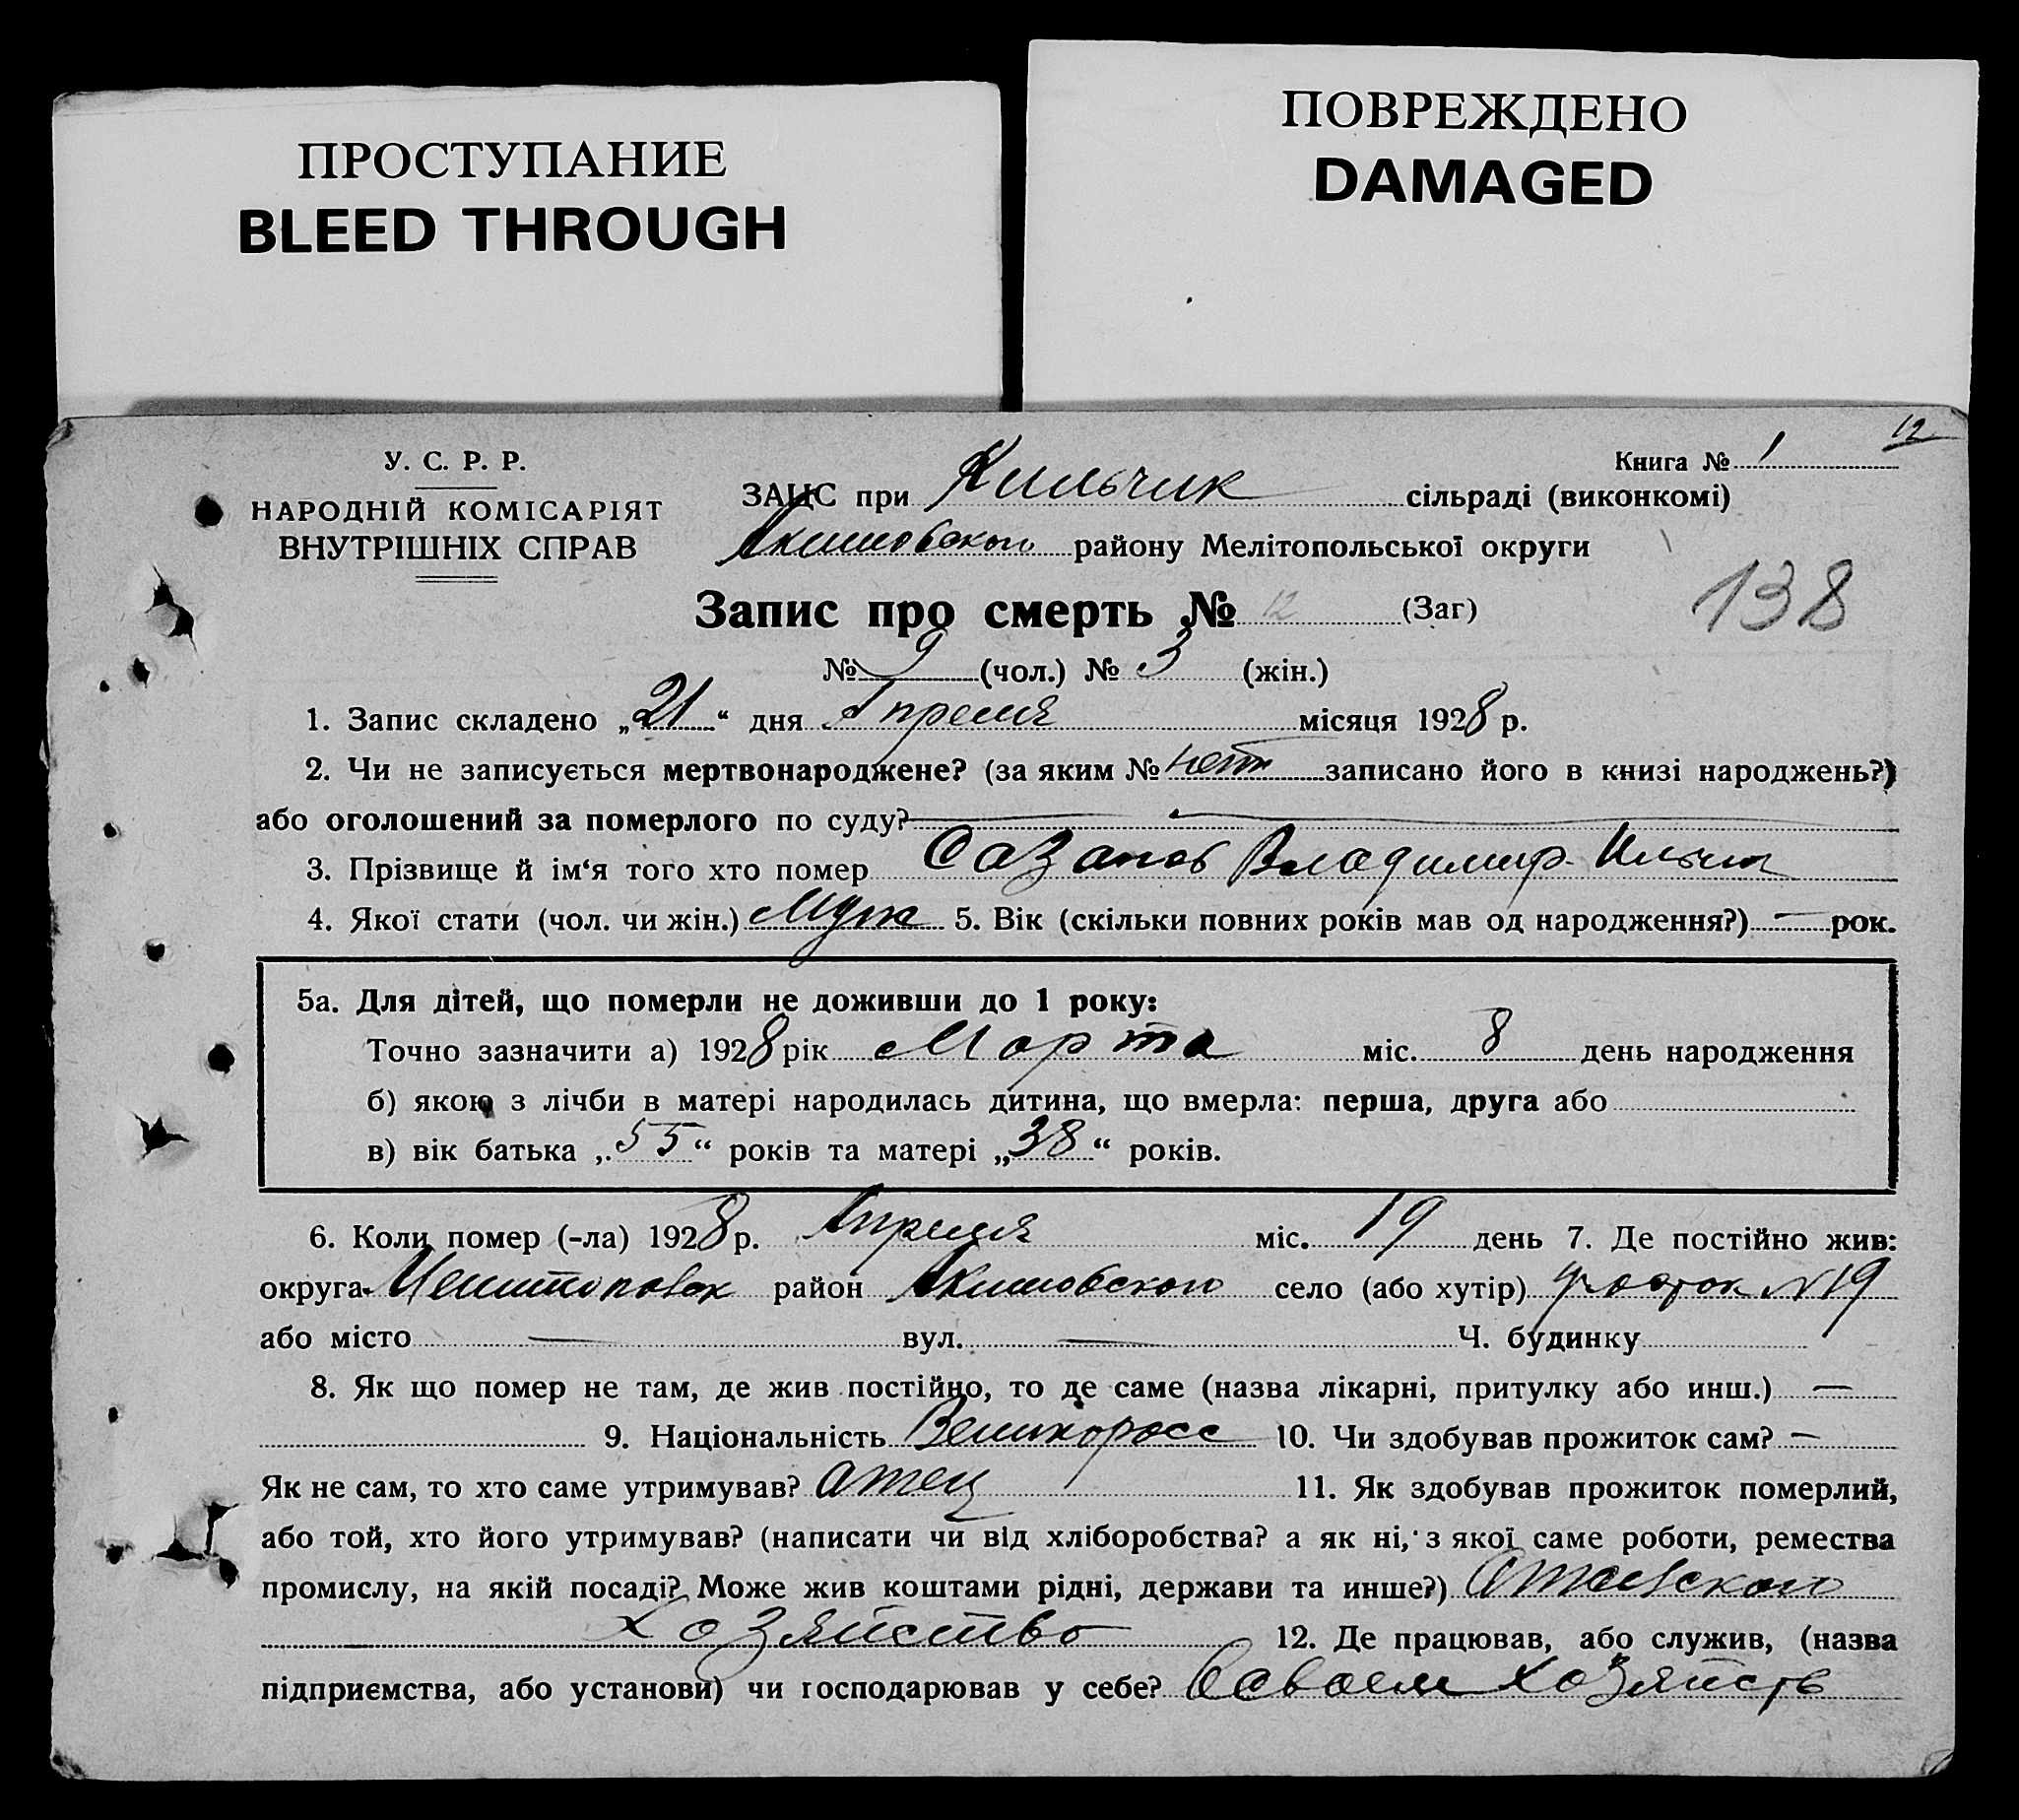 ПРОСТУПАНИЕ
BLEED THROUGH
ПОВРЕЖДЕНО
DAMAGED
12
У. С. Р. Р.
НАРОДНІЙ КОМІСАРІЯТ
ВНУТРІШНІХ СПРАВ
Книга № 1
ЗАЦС при Кильчик сільраді (виконкомі)
Акимовского району Мелітопольської округи
138
Запис про смерть № 12 (Заг)
№ 9 (чол.) № 3 (жін.)
1. Запис складено „21“ дня Апреля місяця 1928 р.
2. Чи не записується мертвонароджене? (за яким № нет записано його в книзі народжень?)
або оголошений за померлого по суду? —
3. Прізвище й ім‘я того хто помер Сазанов Владимир Ильич
4. Якої стати (чол. чи жін.) Муж 5. Вік (скільки повних років мав од народження?) — рок.
5а. Для дітей, що померли не доживши до 1 року:
Точно зазначити а) 1928 рік Марта міс. 8 день народження
б) якою з лічби в матері народилась дитина, що вмерла: перша, друга або
в) вік батька „55“ років та матері „38“ років.
6. Коли помер (-ла) 1928 р. Апреля міс. 19 день 7. Де постійно жив:
округа Мелитополск район Акимовского село (або хутір) №19
або місто — вул. — Ч. будинку
8. Як що помер не там, де жив постійно, то де саме (назва лікарні, притулку або инш.) —
9. Національність Великоросс 10. Чи здобував прожиток сам? —
Як не сам, то хто саме утримував? Отец 11. Як здобував прожиток померлий,
або той, хто його утримував? (написати чи від хліборобства? а як ні, з якої саме роботи, ремества
промислу, на якій посаді? Може жив коштами рідні, держави та инше?)
Хозяйство 12. Де працював, або служив, (назва
підприємства, або установи) чи господарював у себе? В своем хозяйств